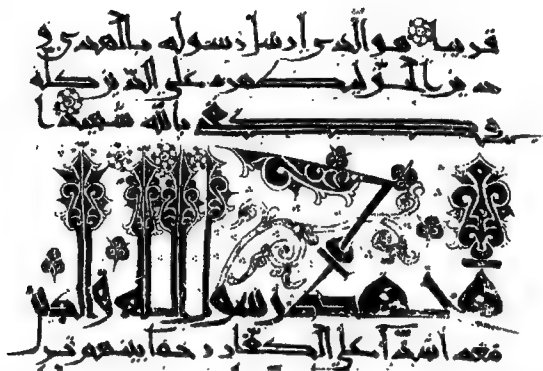 قريبا هو الذى ارسل رسوله بالهدى و
دين الحق ليظهره على الدين كله
و كفى بالله شهيدا
محمد رسول الله والذين
معه أشدّاء على الكفّار رحماء بينهم تر